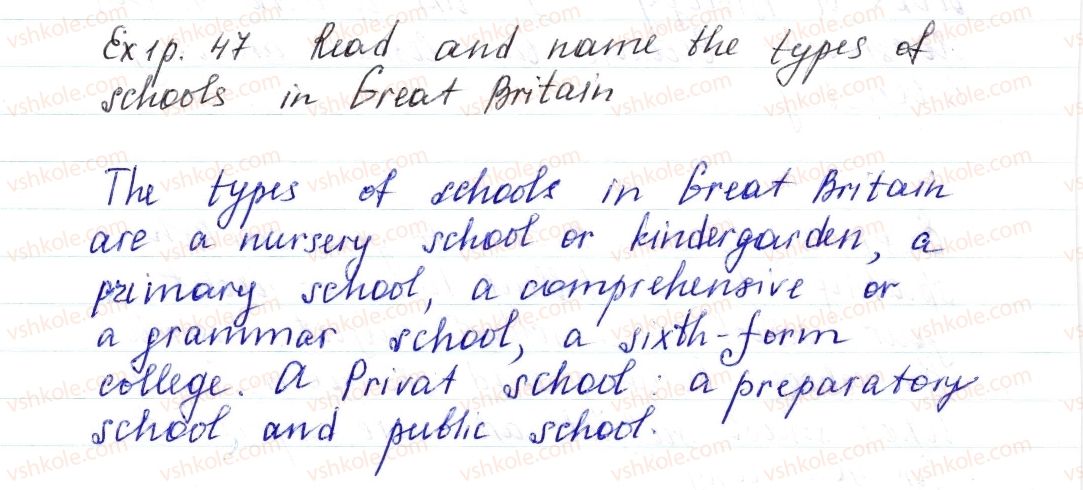 Ex 1 p. 47 Read and name the types of
schools in Great Britain
The types of schools in Great Britain
are a nursery school or kindergarden, a
primary school, a comprehensive or
a grammar school, a sixth-form
college. A Privat school : a preparatory
school and public school.
vshkole.com